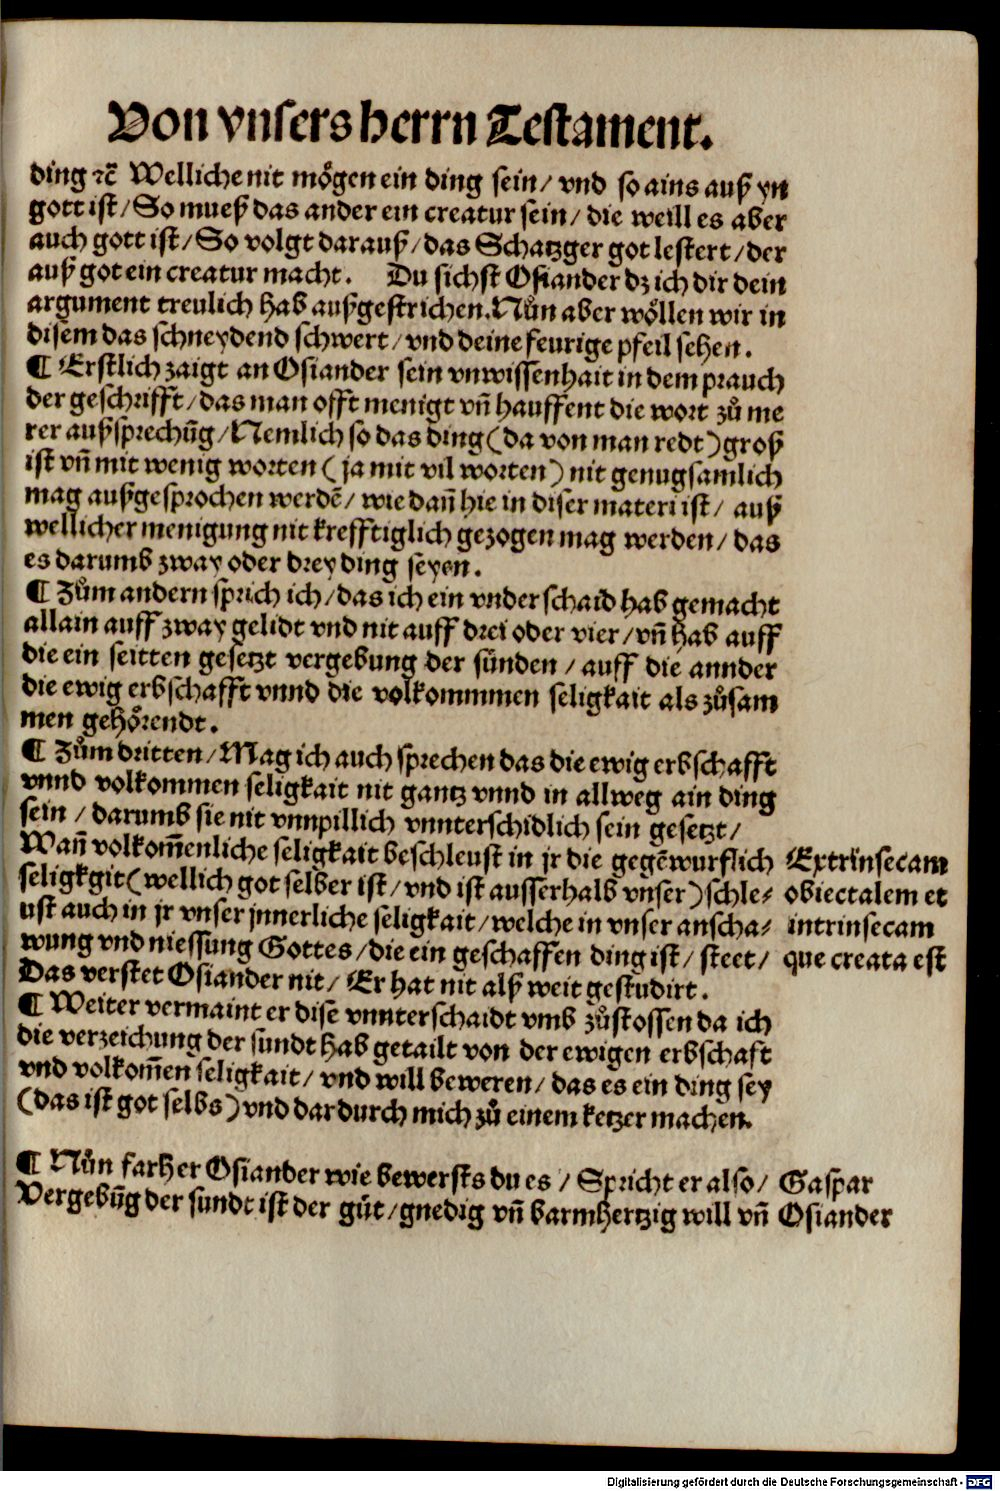 Von vnsers herrn Testament.
ding ⁊c̃ Welliche nit mögen ein ding sein / vnd so ains auß yn
gott ist / So mueß das ander ein creatur sein / die weill es aber
auch gott ist / So volgt darauß / das Schatzger got lestert / der
auß got ein creatur macht. Du sichst Osiander dz ich dir dein
argument treulich hab außgestrichen. Nůn aber wöllen wir in
disem das schneydend schwert / vnd deine feurige pfeil sehen.
¶ Erstlich zaigt an Osiander sein vnwissenhait in dem prauch
der geschrifft / das man offt menigt vñ hauffent die wort zů me
rer außsprechũg / Nemlich so das ding (da von man redt) groß
ist vñ mit wenig worten ( ja mit vil worten ) nit genugsamlich
mag außgesprochen werdẽ / wie dañ hie in diser materi ist / auß
wellicher menigung nit krefftiglich gezogen mag werden / das
es darumb zway oder drey ding seyen.
¶ Zům andern sprich ich / das ich ein vnderschaid hab gemacht
allain auff zway gelidt vnd nit auff drei oder vier / vñ hab auff
die ein seitten gesetzt vergebung der sünden / auff die annder
die ewig erbschafft vnnd die volkommmen seligkait als zůsam
men gehörendt.
¶ Zům dritten / Mag ich auch sprechen das die ewig erbschafft
vnnd volkommen seligkait nit gantz vnnd in allweg ain ding
sein / darumb sie nit vnnpillich vnnterschidlich sein gesetzt /
Wañ volkom̃enliche seligkait beschleust in jr die gegẽwurflich
seligkgit (wellich got selber ist / vnd ist ausserhalb vnser) schle⸗
ust auch in jr vnser jnnerliche seligkait / welche in vnser anscha⸗
wung vnd niessung Gottes / die ein geschaffen ding ist / steet /
Das verstet Osiander nit / Er hat nit alß weit gestudirt.
Extrinsecam
obiectalem et
intrinsecam
que creata est
¶ Weiter vermaint er dise vnnterschaidt vmb zůstossen da ich
die verzeichung der sundt hab getailt von der ewigen erbschaft
vnd volkom̃en seligkait / vnd will beweren / das es ein ding sey
(das ist got selbs) vnd dardurch mich zů einem ketzer machen.
¶ Nůn farh er Osiander wie bewersts du es / Spricht er also /
Vergebũg der sundt ist der gůt / gnedig vñ barmhertzig will vñ
Gaspar
Osiander
Digitalisierung gefördert durch die Deutsche Forschungsgemeinschaft - DFG